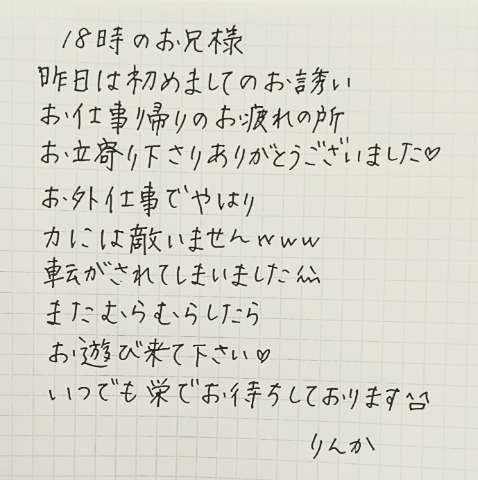 18時のお兄様
昨日は初めましてのお誘い
お仕事り帰りのお疲れの所
お立寄り下さりありがとうございました♡
お外仕事でやはり
力には敵いませんwww
転がされてしまいました^^
またむらむらしたら
お遊び来て下さい♡
いつでも栄でお待ちしております^^
りんか